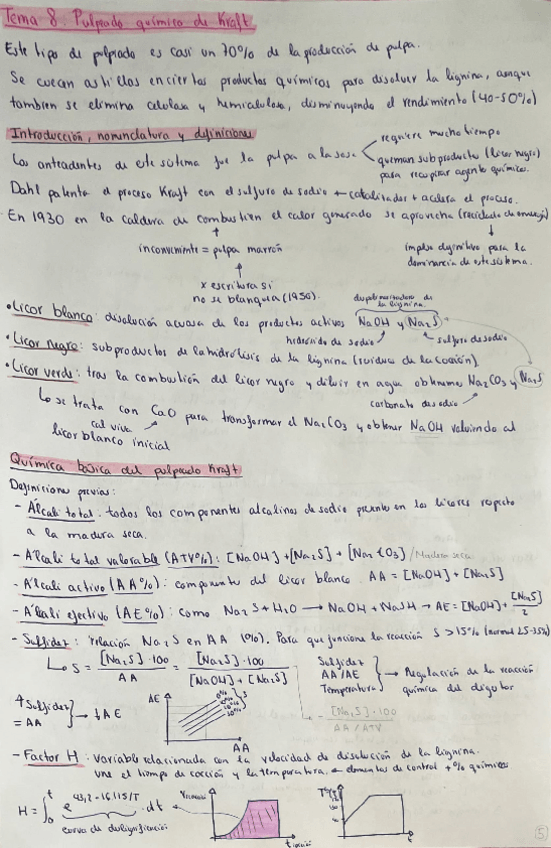 Tema 8: Pulpeado químico de Kraft
Este tipo de pulpeado es casi un 70% de la producción de pulpa.
Se cuecen astillas en ciertos productos químicos para disolver la lignina, aunque
tambien se elimina celulosa y hemicelulosa, disminuyendo el rendimiento (40-50%)
Introducción, nomenclatura y definiciones
requiere mucho tiempo
Los antecedentes de este sistema fue la pulpa a la sosa
queman subproductos (licor negro)
para recuperar agente químicos.
Dahl patenta el proceso Kraft con el sulfuro de sodio ← catalizador + acelera el proceso.
En 1930 en la caldera de combustion el calor generado se aprovecha (recicla de energía)
inconveniente = pulpa marrón
implso definitivo para la
dominancia de este sistema.
x escritura si
no se blanquea (1950).
despolimerizadora de
la lignina.
• Licor blanco: disolución acuosa de los productos activos NaOH y Na₂S
hidróxido de sodio
sulfuro de sodio
• Licor negro: subproductos de la hidrólisis de la lignina (residuo de la cocción)
• Licor verde: tras la combustión del licor negro y diluir en agua obtenemos Na₂CO₃ y Na₂S
carbonato de sodio
Lo se trata con CaO para transformar el Na₂CO₃ y obtener NaOH volviendo al
cal viva
licor blanco inicial
Química básica del pulpeado Kraft
Definiciones previas:
- Álcali total: todos los componentes alcalinos de sodio presente en los licores respecto
a la madera seca.
- Álcali total valorable (ATV%): [NaOH] + [Na₂S] + [Na₂CO₃] / Madera seca
- Álcali activo (AA%): componente del licor blanco. AA = [NaOH] + [Na₂S]
- Álcali efectivo (AE%): como Na₂S + H₂O → NaOH + NaSH → AE = [NaOH] + [Na₂S]/2
- Sulfidez: relación Na₂S en AA (%). Para que funcione la reacción S > 15% (normal 25-35%)
S = [Na₂S]·100 / AA = [Na₂S]·100 / [NaOH] + [Na₂S]
Sulfidez
AA/AE
Temperatura
→ Regulación de la reacción
química del digestor
[Na₂S]·100
AA/ATV
↑ Sulfidez
= AA
→ ↓AE
AE
S
AA
- Factor H: variable relacionada con la velocidad de disolución de la lignina.
une el tiempo de cocción y la temperatura. ← elementos de control + % químicos
H = ∫₀ᵗ e^(43,2-16115/T) · dt
curva de deslignificación
t cocción
T
t
5